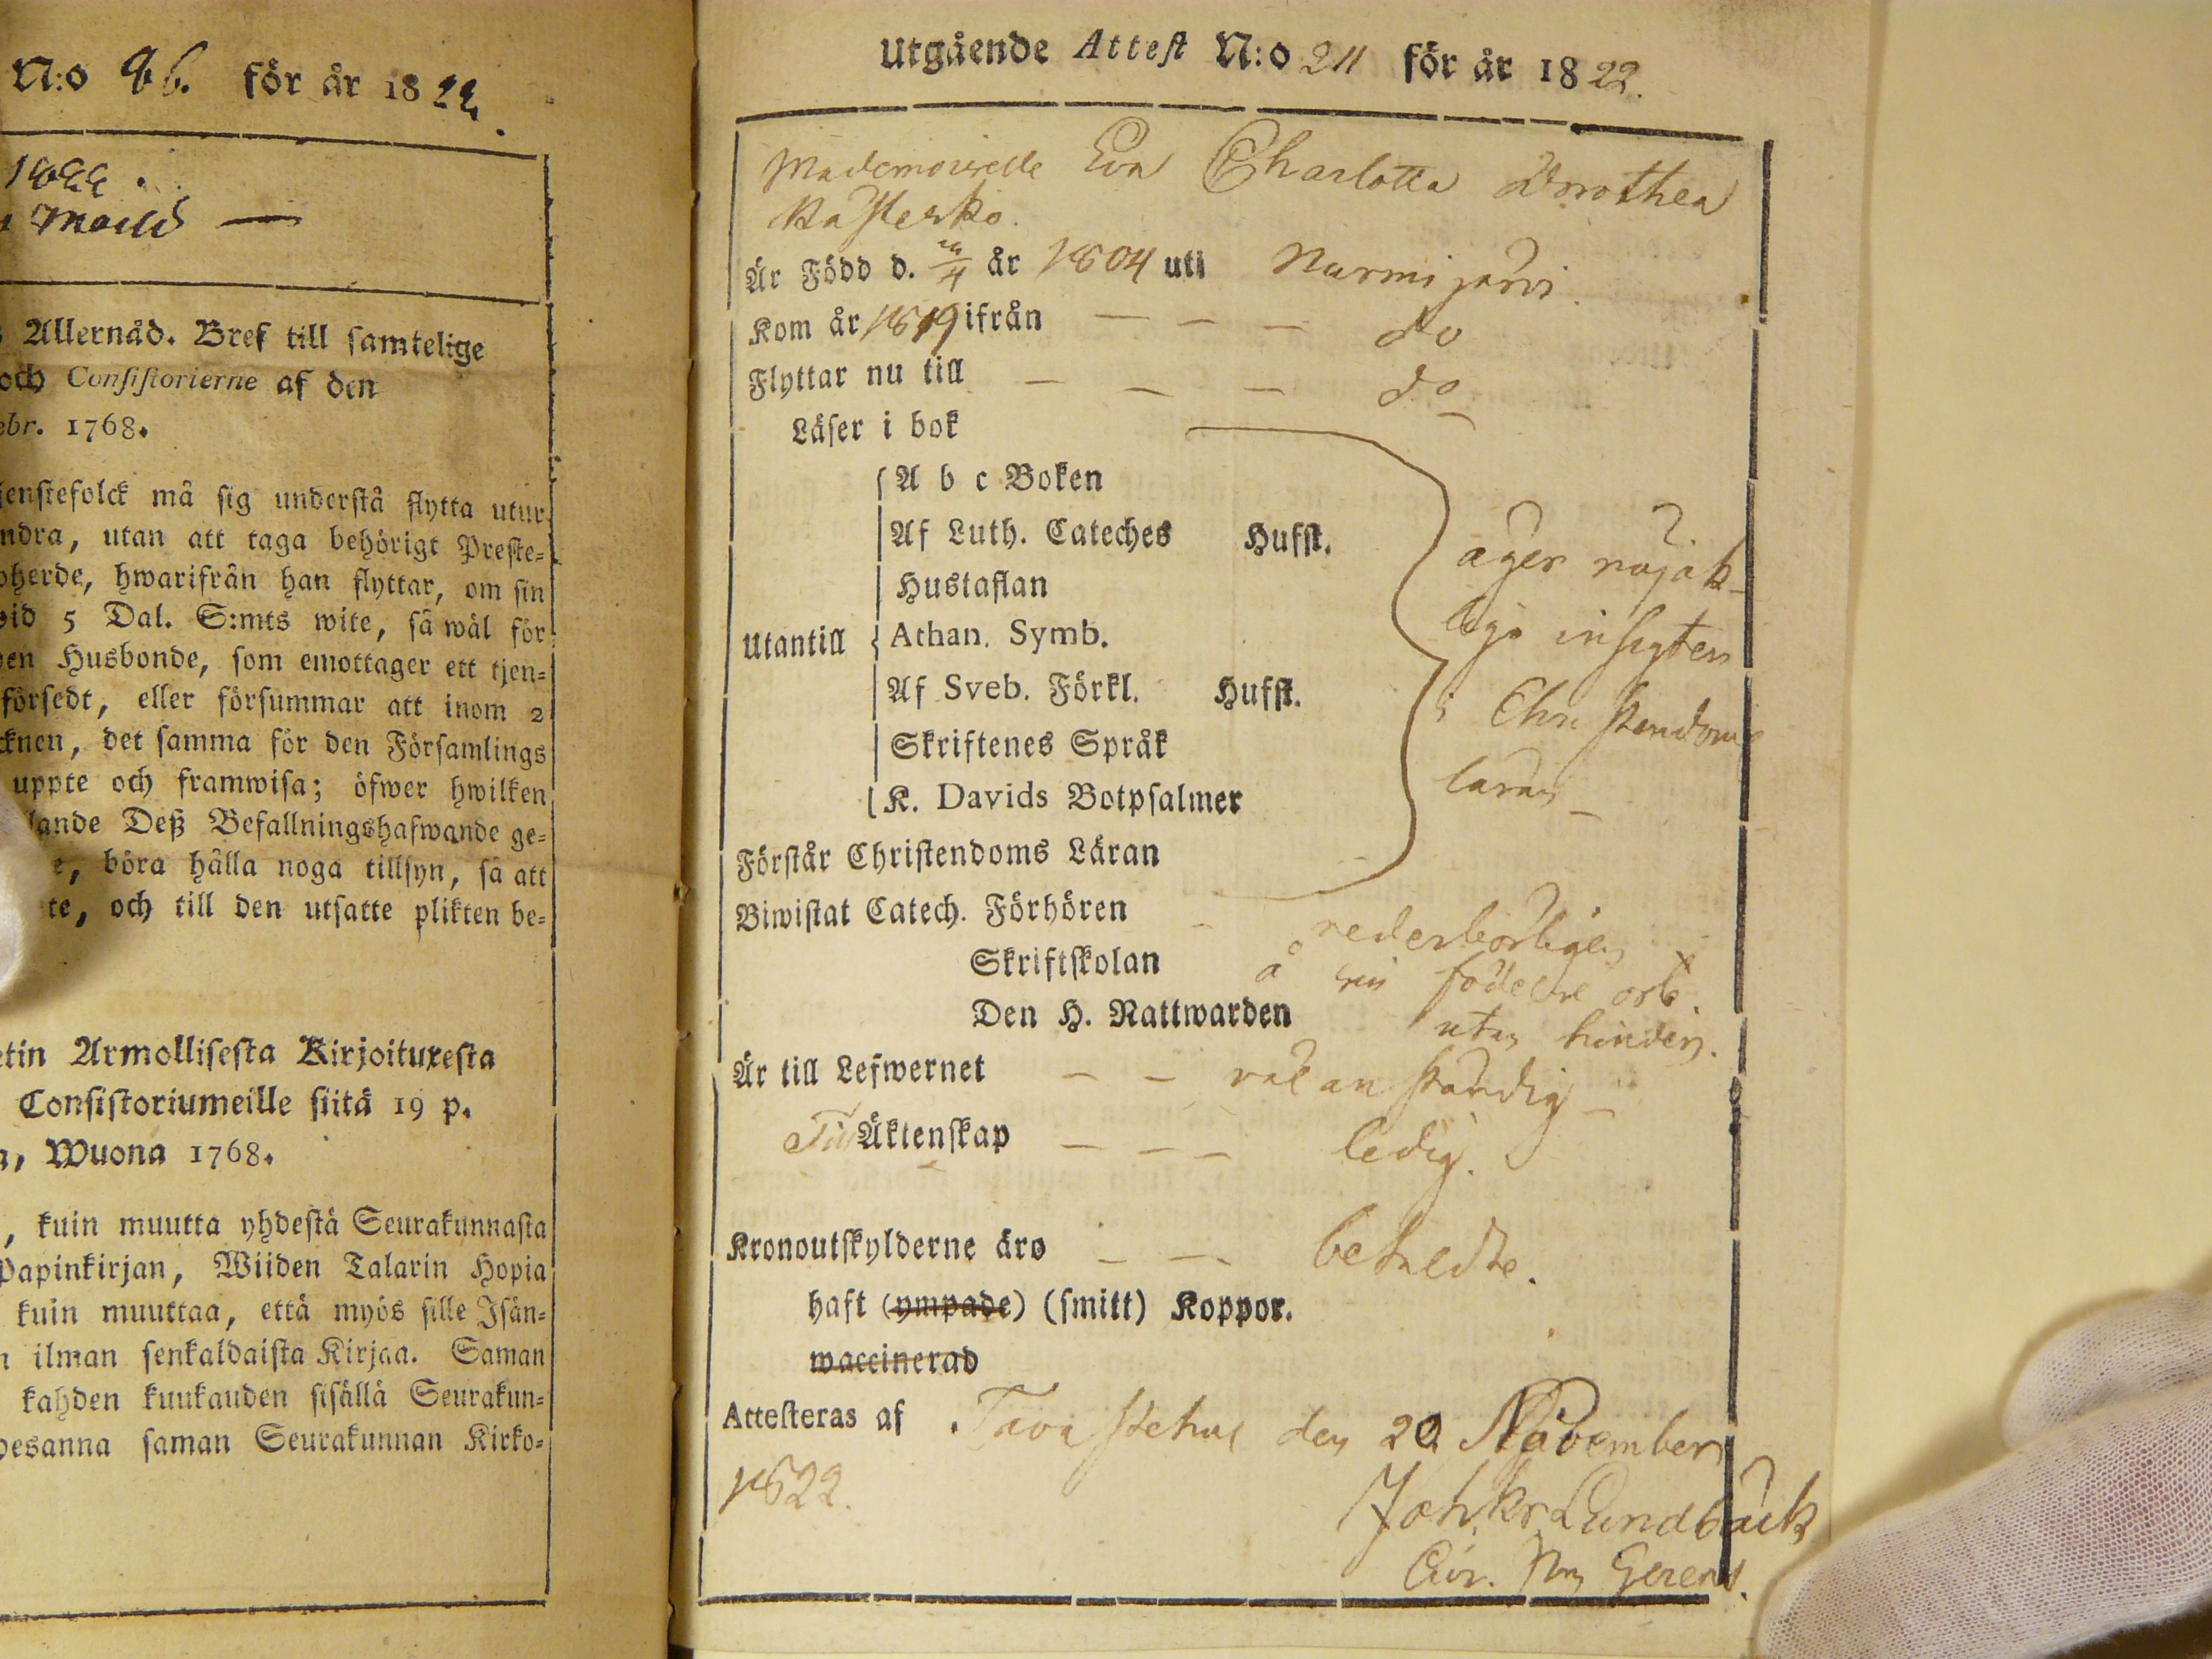 N:o 96. för år 1822.
1822.
Allernåd. Bref till samtelige
och Consistorierne af den
ebr. 1768.
jenstefolck må sig understå flytta utur
ndra, utan att taga behörigt Preste-
oherde, hwarifrån han flyttar, om sin
wid 5 Dal. S:mts wite, så wäl för
den Husbonde, som emottager ett tjen-
försedt, eller försummar att inom 2
cknen, det samma för den Församlings
uppte och framwisa; öfwer hwilken
lande Deß Befallningshafwande ge-
e, böra hålla noga tillsyn, så att
te, och till den utsatte plikten be-
etin Armollisesta Kirjoituxesta
Consistoriumeille siitä 19 p.
a, Wuona 1768.
, kuin muutta yhdestä Seurakunnasta
Papinkirjan, Wiiden Talarin Hopia
kuin muuttaa, että myös sille Isän-
n ilman senkaldaista Kirjaa. Saman
kahden kuukauden sisällä Seurakun-
pesanna saman Seurakunnan Kirko-
Utgående Attest N:o 211 för år 1822.
Mademoiselle Eva Charlotta Dorothea
Kasterko.
Är Född d. /4 år 1804 uti Nurmijärvi.
Kom år 1819 ifrån — — — do
Flyttar nu till — — — do
Läser i bok
A b c Boken
Af Luth. Cateches Hufst.
Hustaflan
Utantill Athan. Symb.
Af Sveb. Förkl. Hufst.
Skriftenes Språk
K. Davids Botpsalmer
Förstår Christendoms Läran
äger nöjak-
liga insigter
i Christendoms
läran —
Biwistat Catech. Förhören - vederbörligen
Skriftskolan å sin födelse ort.
Den H. Nattwarden utan hinder.
Är till Lefwernet — — väl anständig —
Till Äktenskap — — — ledig.
Kronoutskylderne äro — — betalde.
haft (ympade) (smitt) Koppor.
waccinerad
Attesteras af. Tavastehus den 20 November
1822.
Joh. Kr. Lundbäck
Gerens.